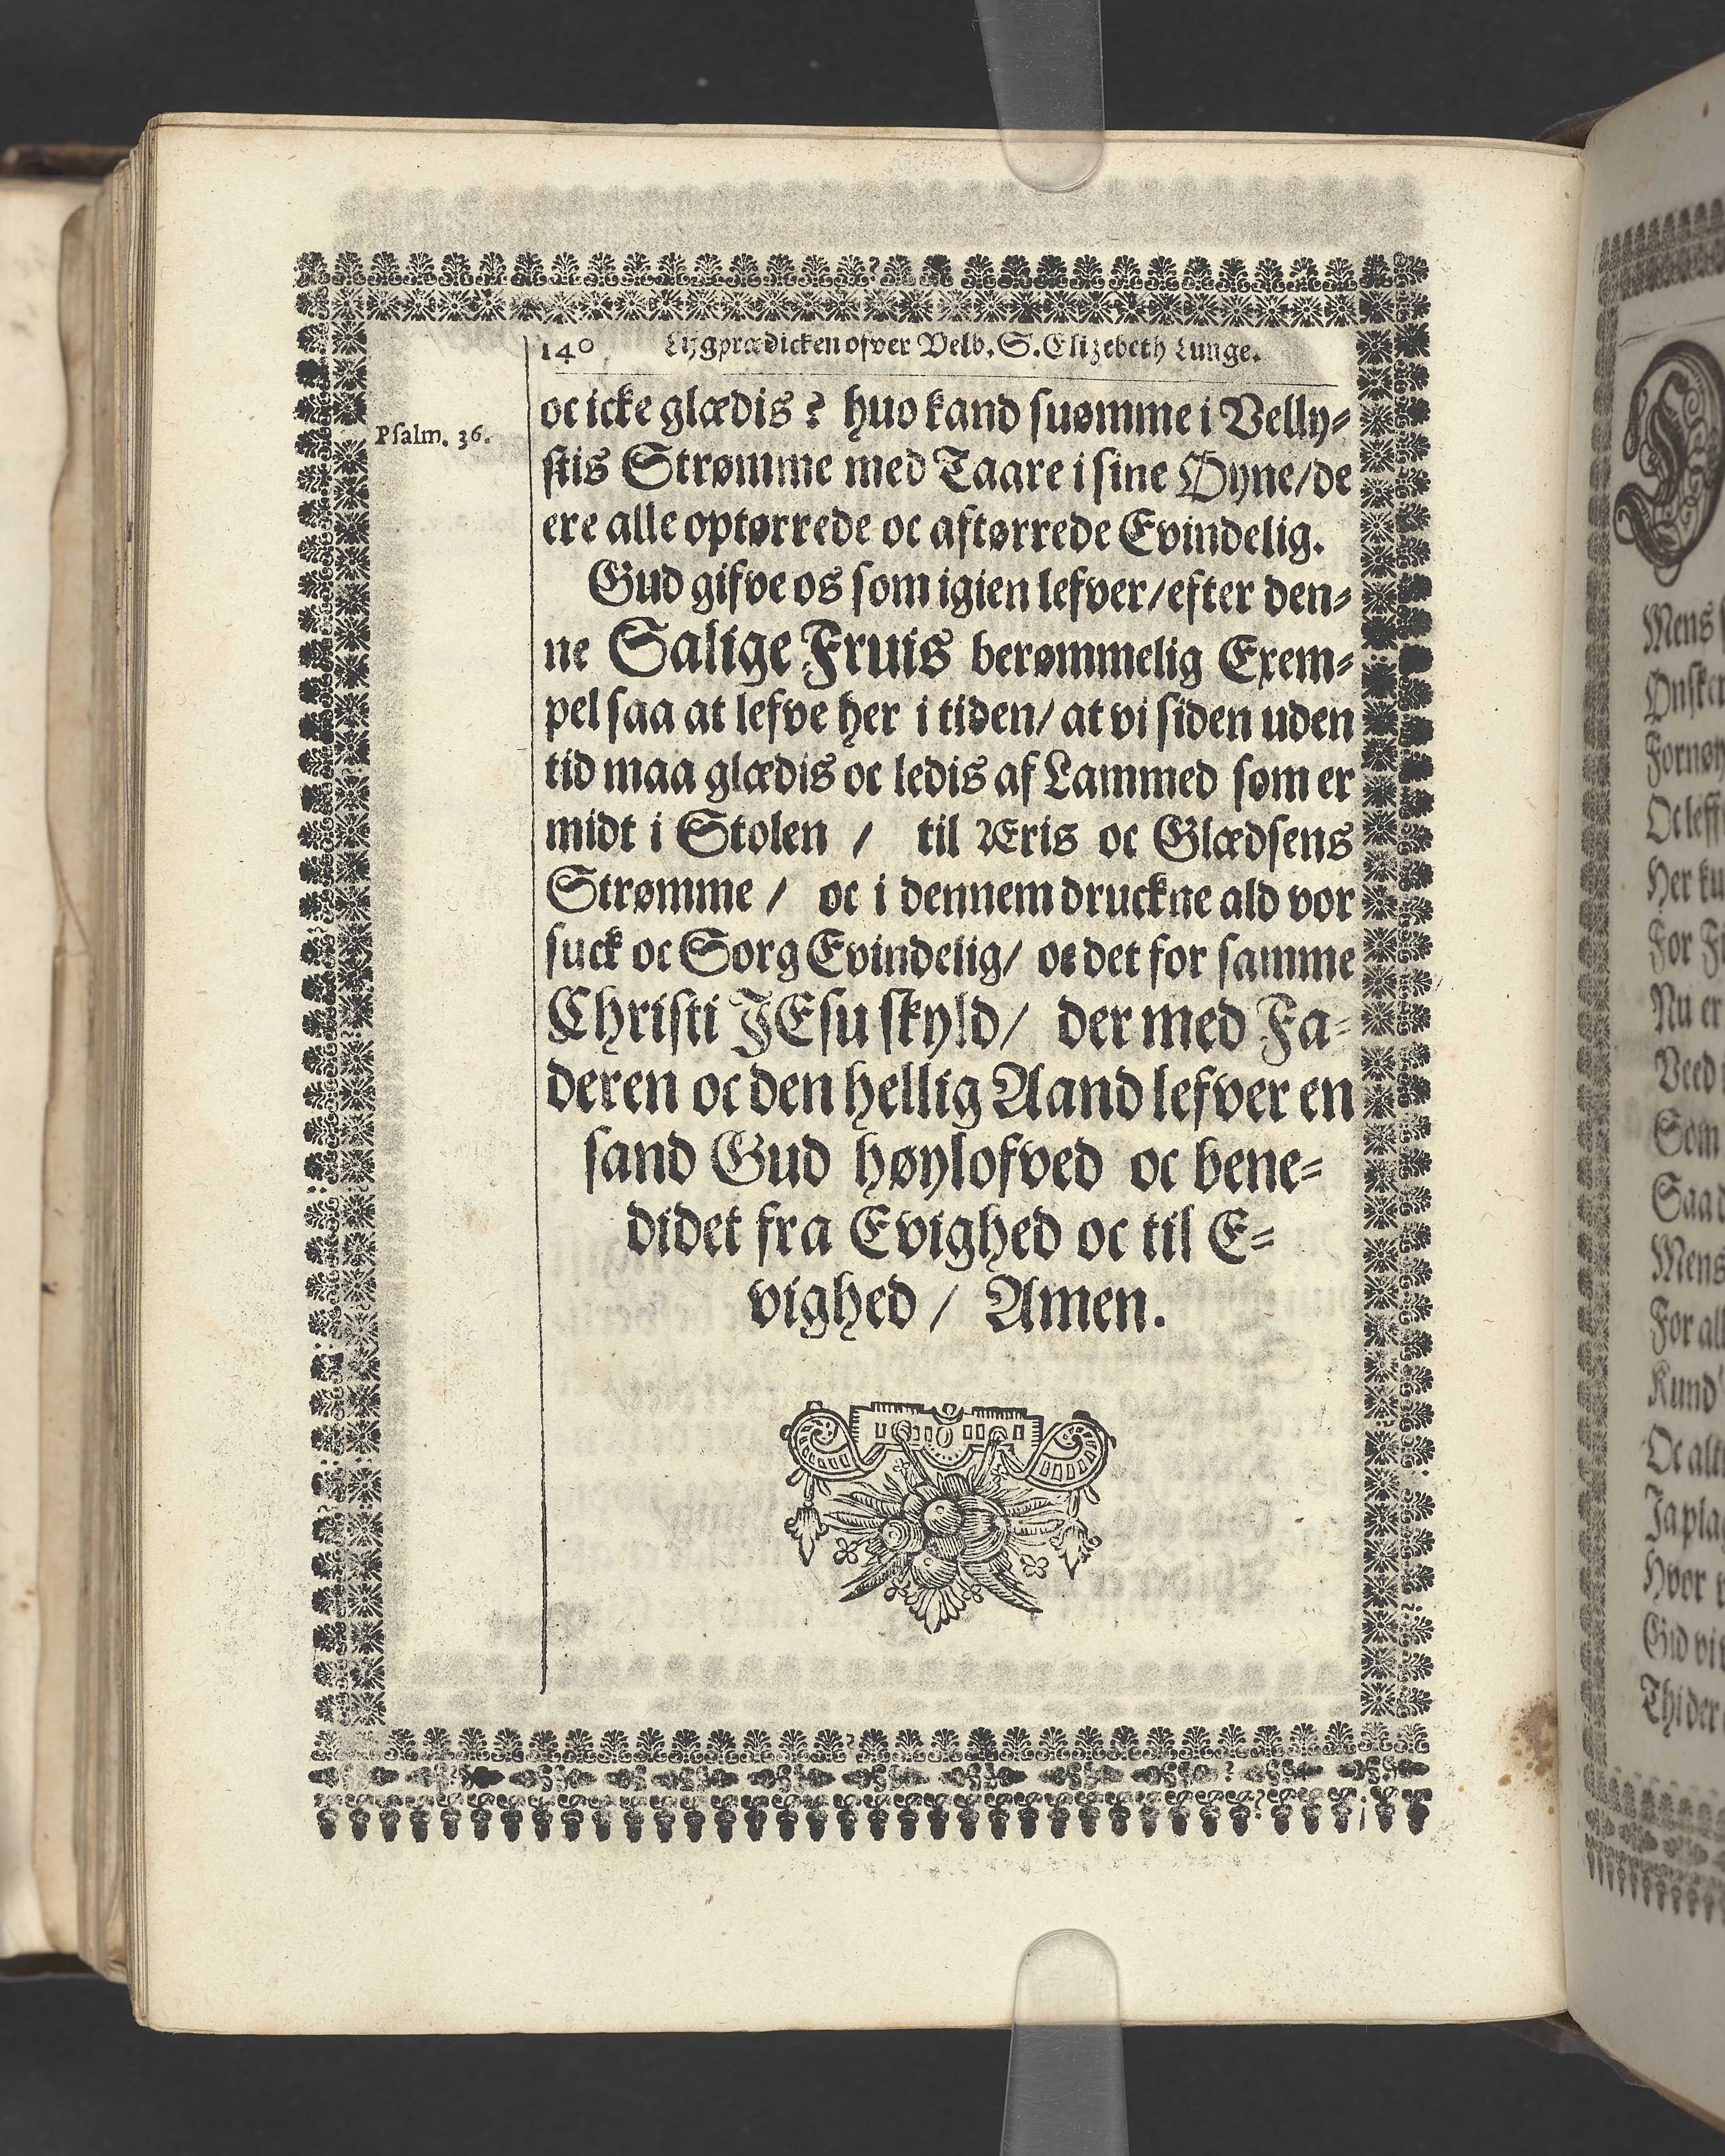 140 Ligprædicken ofver Velb. S. Elizebeth Lunge.
Psalm. 36.
oc icke glædis? huo kand suømme i Velly⸗
stis Strømme med Taare i sine Øyne/de
ere alle optørrede oc aftørrede Evindelig.
Gud gifve os som igien lefver/efter den⸗
ne Salige Fruis berømmelig Exem⸗
pel saa at lefve her i tiden/ at vi siden uden
tid maa glædis oc ledis af Lammed som er
midt i Stolen / til Æris oc Glædsens
Strømme / oc i dennem druckne ald vor
suck oc Sorg Evindelig/ oc det for samme
Christi JEsu skyld/ der med Fa⸗
deren oc den hellig Aand lefver en
sand Gud høylofved oc bene⸗
didet fra Evighed oc til E⸗
vighed / Amen.
Mens
Ønsker
Fornøy
Oc leff
Her ku
For F
Nu er
Veed
Som
Saa
Mens
For all
Kund
Oc alt
Ja pla
Hvor
Gid vi
Thi der